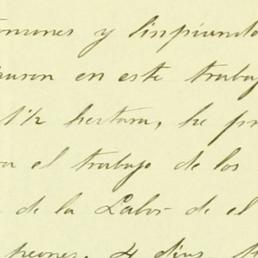 y limpiando
en este trabaj
1½ hectara, he pr
el trabajo de los
de la Labor de el
peones, 4 dias